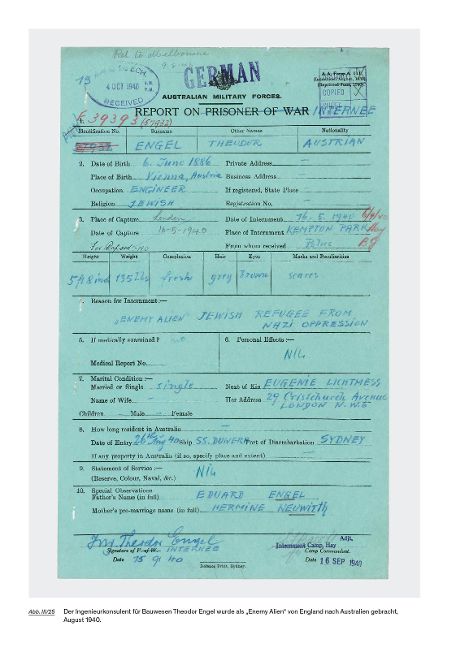 Ret. to Melbourne
19
4 OCT 1940
RECEIVED
GERMAN
A.A. Form A 111
COPIED
AUSTRALIAN MILITARY FORCES.
REPORT ON PRISONER OF WAR INTERNEE
1. E 39393 (57932)
Identification No. Surname Other Names Nationality
ENGEL THEODOR AUSTRIAN
2. Date of Birth 6. June 1886 Private Address —
Place of Birth Vienna, Austria Business Address —
Occupation ENGINEER If registered, State Place
Religion JEWISH Registration No. —
3. Place of Capture London Date of Internment 16. 5. 1940
Date of Capture 16-5-1940 Place of Internment KEMPTON PARK Hay
From whom received
Height Weight Complexion Hair Eyes Marks and Peculiarities
135 lbs fresh grey Brown scares
4. Reason for Internment :—
„ENEMY ALIEN" JEWISH REFUGEE FROM
NAZI OPPRESSION
5. If medically examined? no 6. Personal Effects :—
NIL
Medical Report No.
7. Marital Condition :—
Married or Single single Next of Kin EUGENIE LICHTMESS
Name of Wife — Her Address 29 Cristchurch Avenue
LONDON N.W.6
Children — Male — Female
8. How long resident in Australia —
Date of Entry 26th Aug 40 Ship SS. DUNERA Port of Disembarkation SYDNEY
If any property in Australia (if so, specify place and extent) —
9. Statement of Service :— NIL
(Reserve, Colour, Naval, &c.)
10. Special Observations
Father's Name (in full) EDUARD ENGEL
Mother's pre-marriage name (in full) HERMINE NEUWIRTH
Ing Theodor Engel
Signature of P.-of-W. INTERNEE
Date 15 9 40
Adjt.
Internment Camp, Hay
Camp Commandant.
Date 16 SEP 1940
Defence Press, Sydney.
Abb. III/25 Der Ingenieurkonsulent für Bauwesen Theodor Engel wurde als „Enemy Alien“ von England nach Australien gebracht,
August 1940.